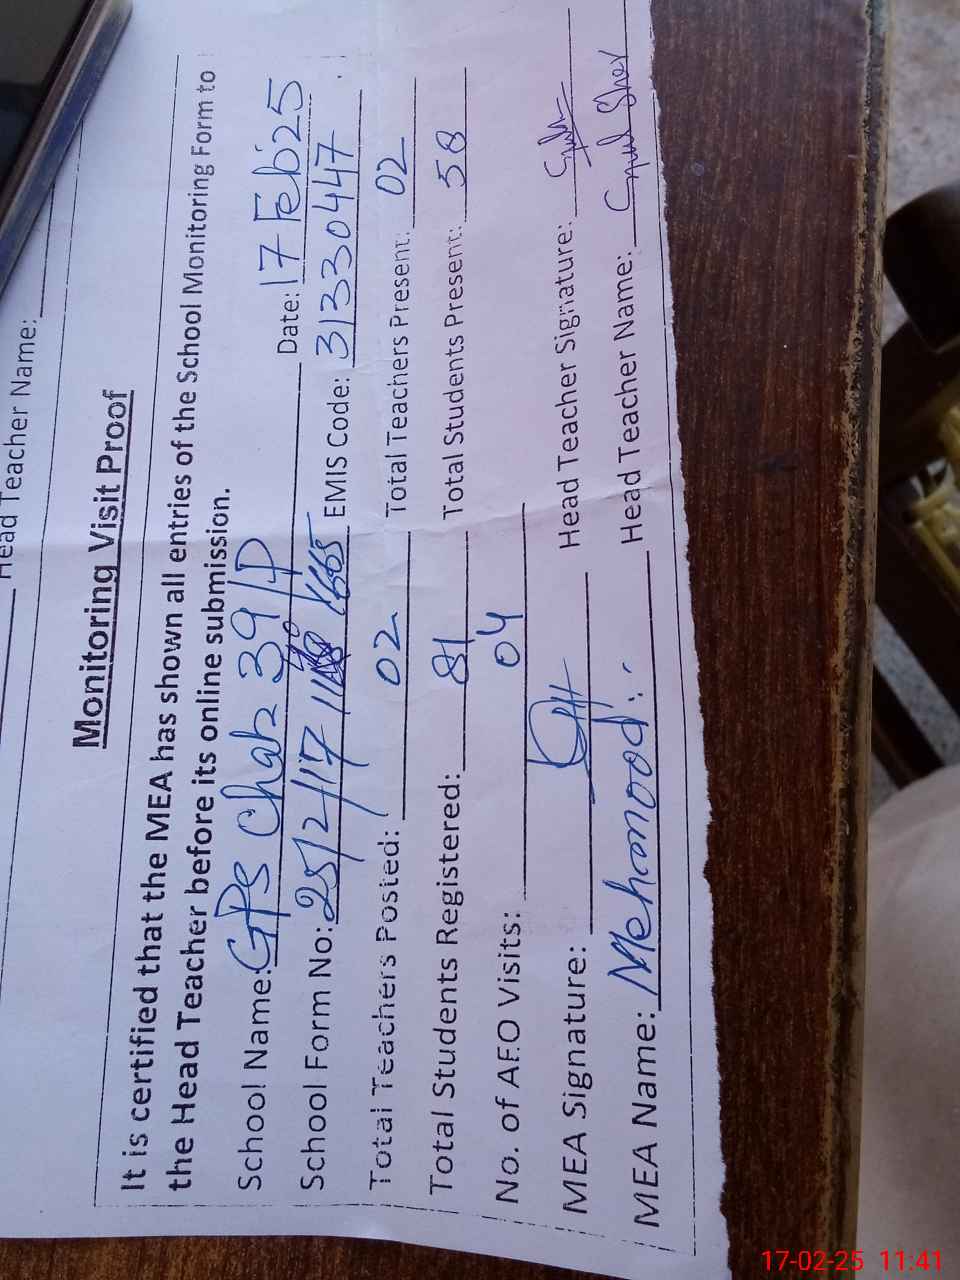 Head Teacher Name:
Monitoring Visit Proof
It is certified that the MEA has shown all entries of the School Monitoring Form to
the Head Teacher before its online submission.
School Name: GPS Chak 39/P Date: 17 Feb 25
School Form No: 25/2/17/ 1665 EMIS Code: 31330447
Total Teachers Posted: 02 Total Teachers Present: 02
Total Students Registered: 81 Total Students Present: 58
No. of AEO Visits: 04
MEA Signature: Head Teacher Signature:
MEA Name: Mehmood Head Teacher Name:
17-02-25 11:41